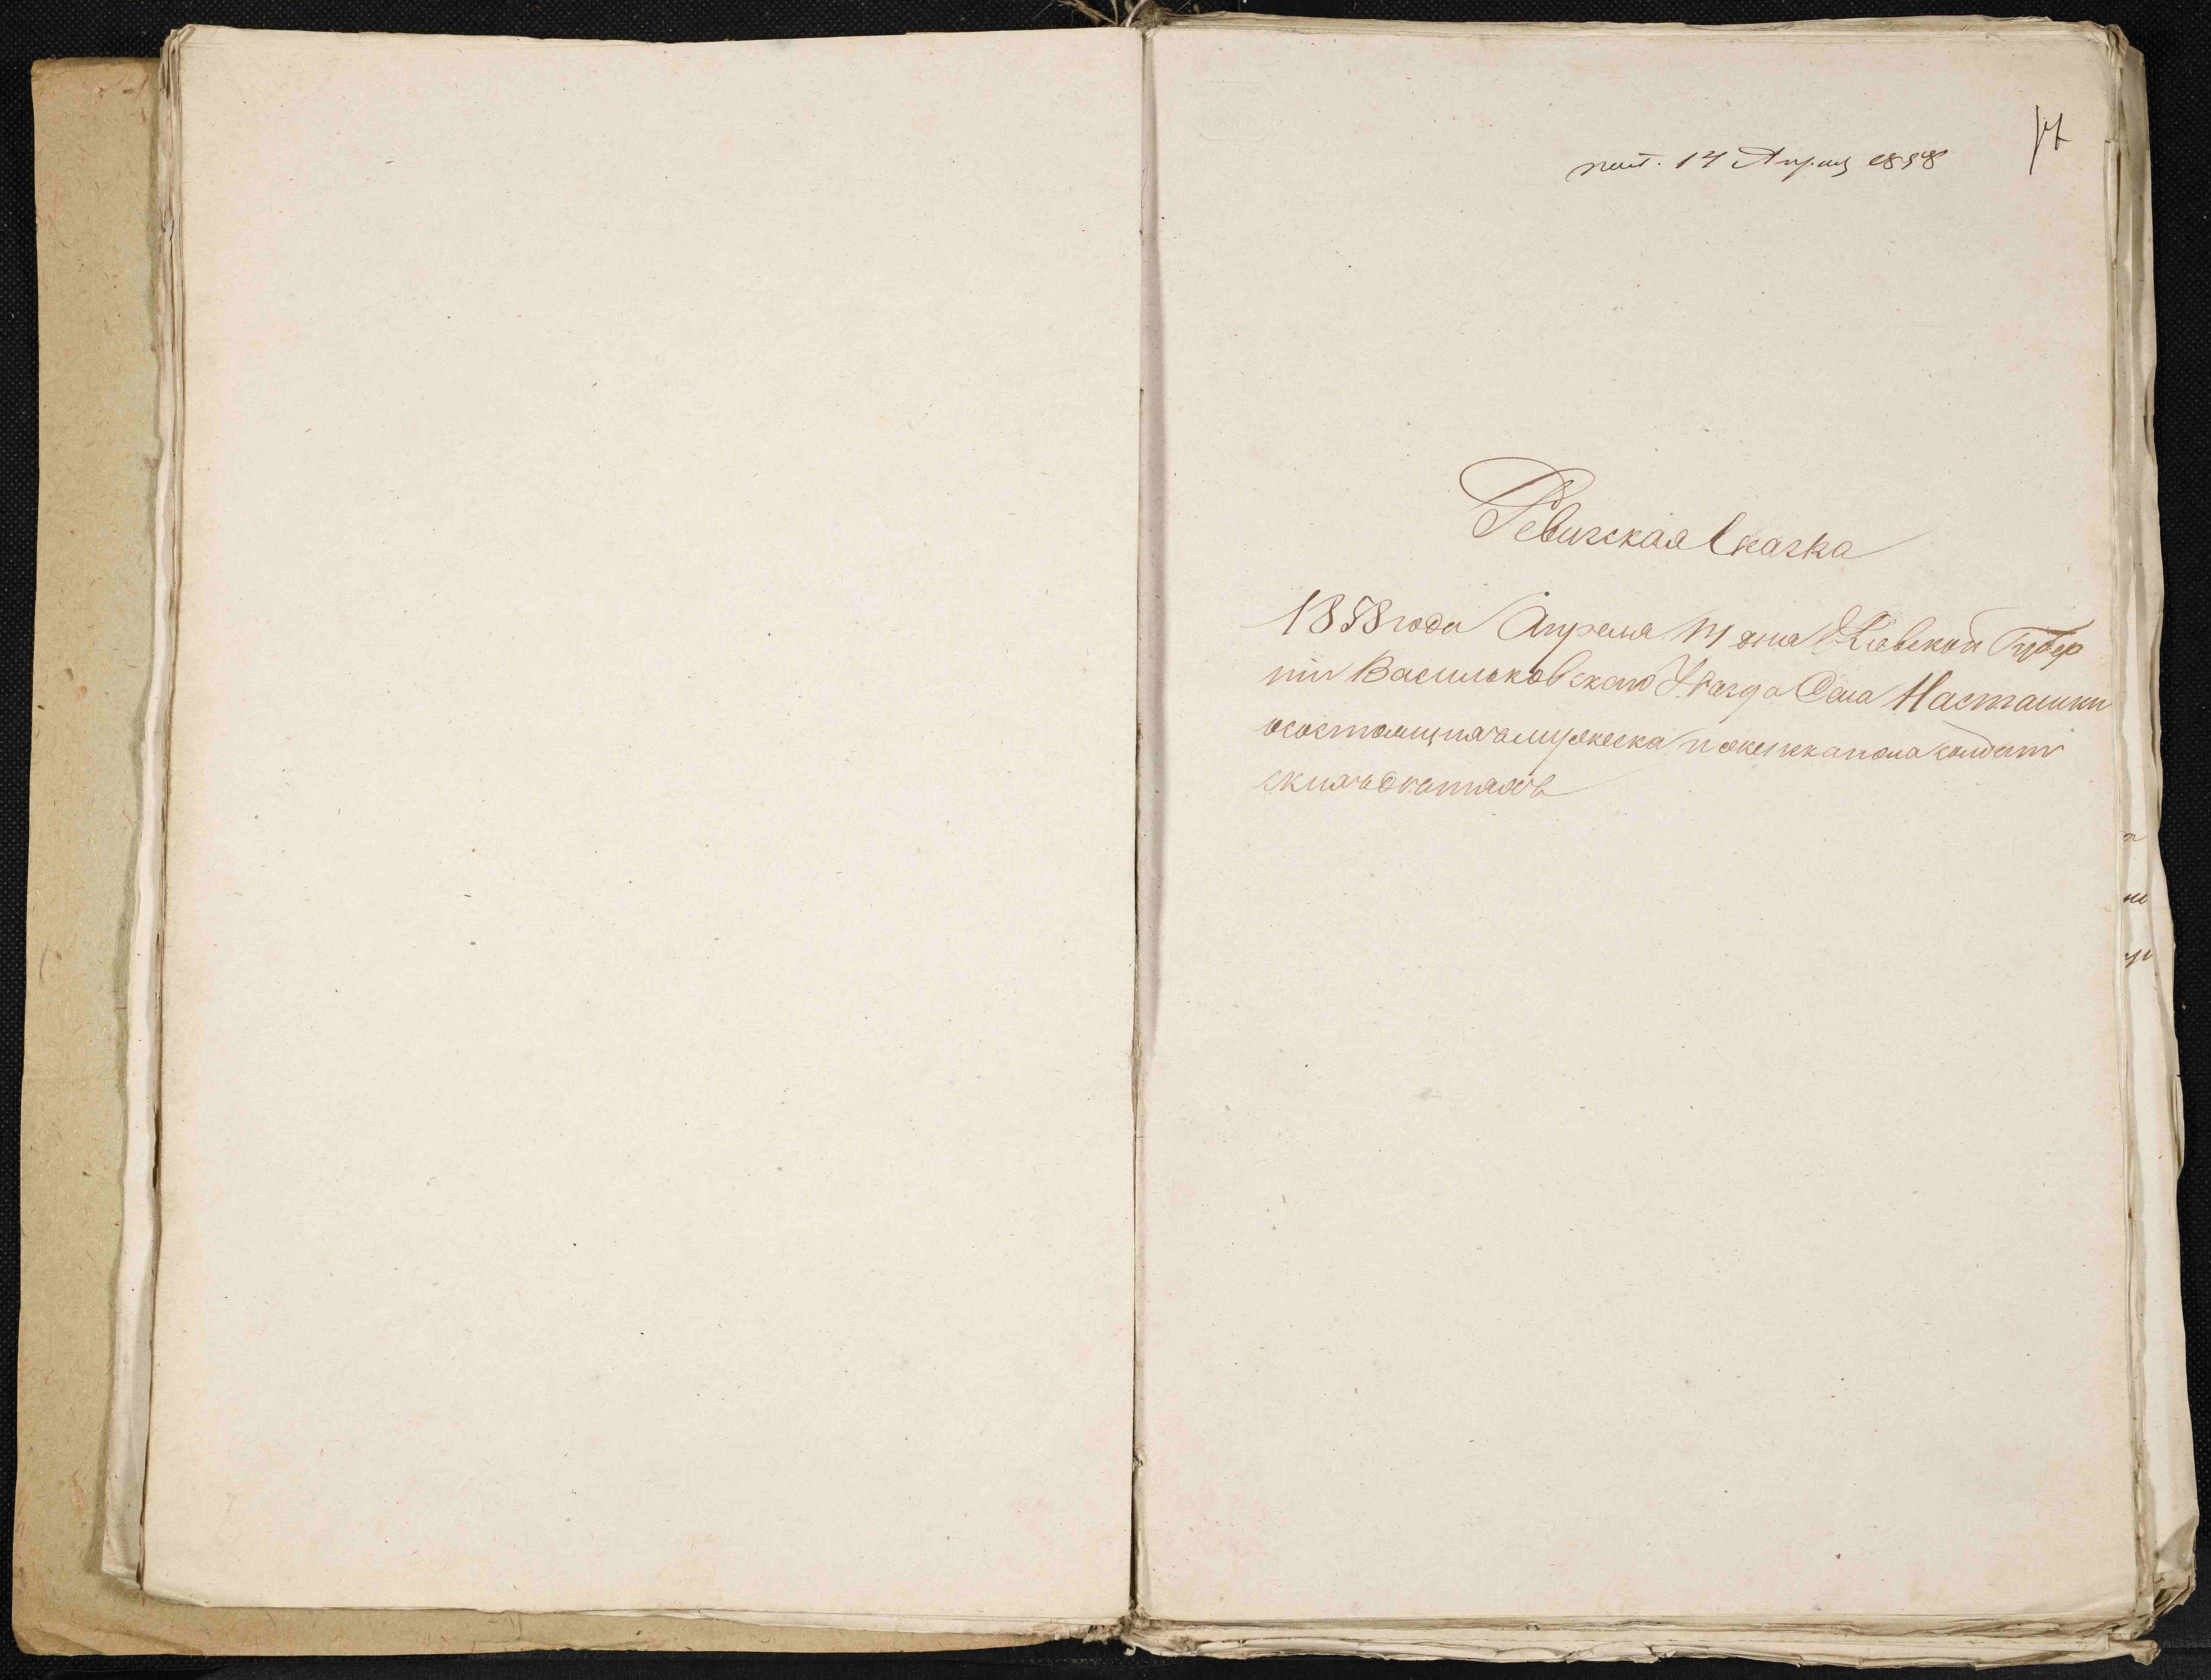 пол. 14 Апреля 1858
Ревизская Сказка
1858 года Апреля 14 дня Киевской Губер
нии Васильковскаго Уѣзда Села Насташки
осостоящихъ мужеска и женска пола солдат
скихъ дѣтяхъ